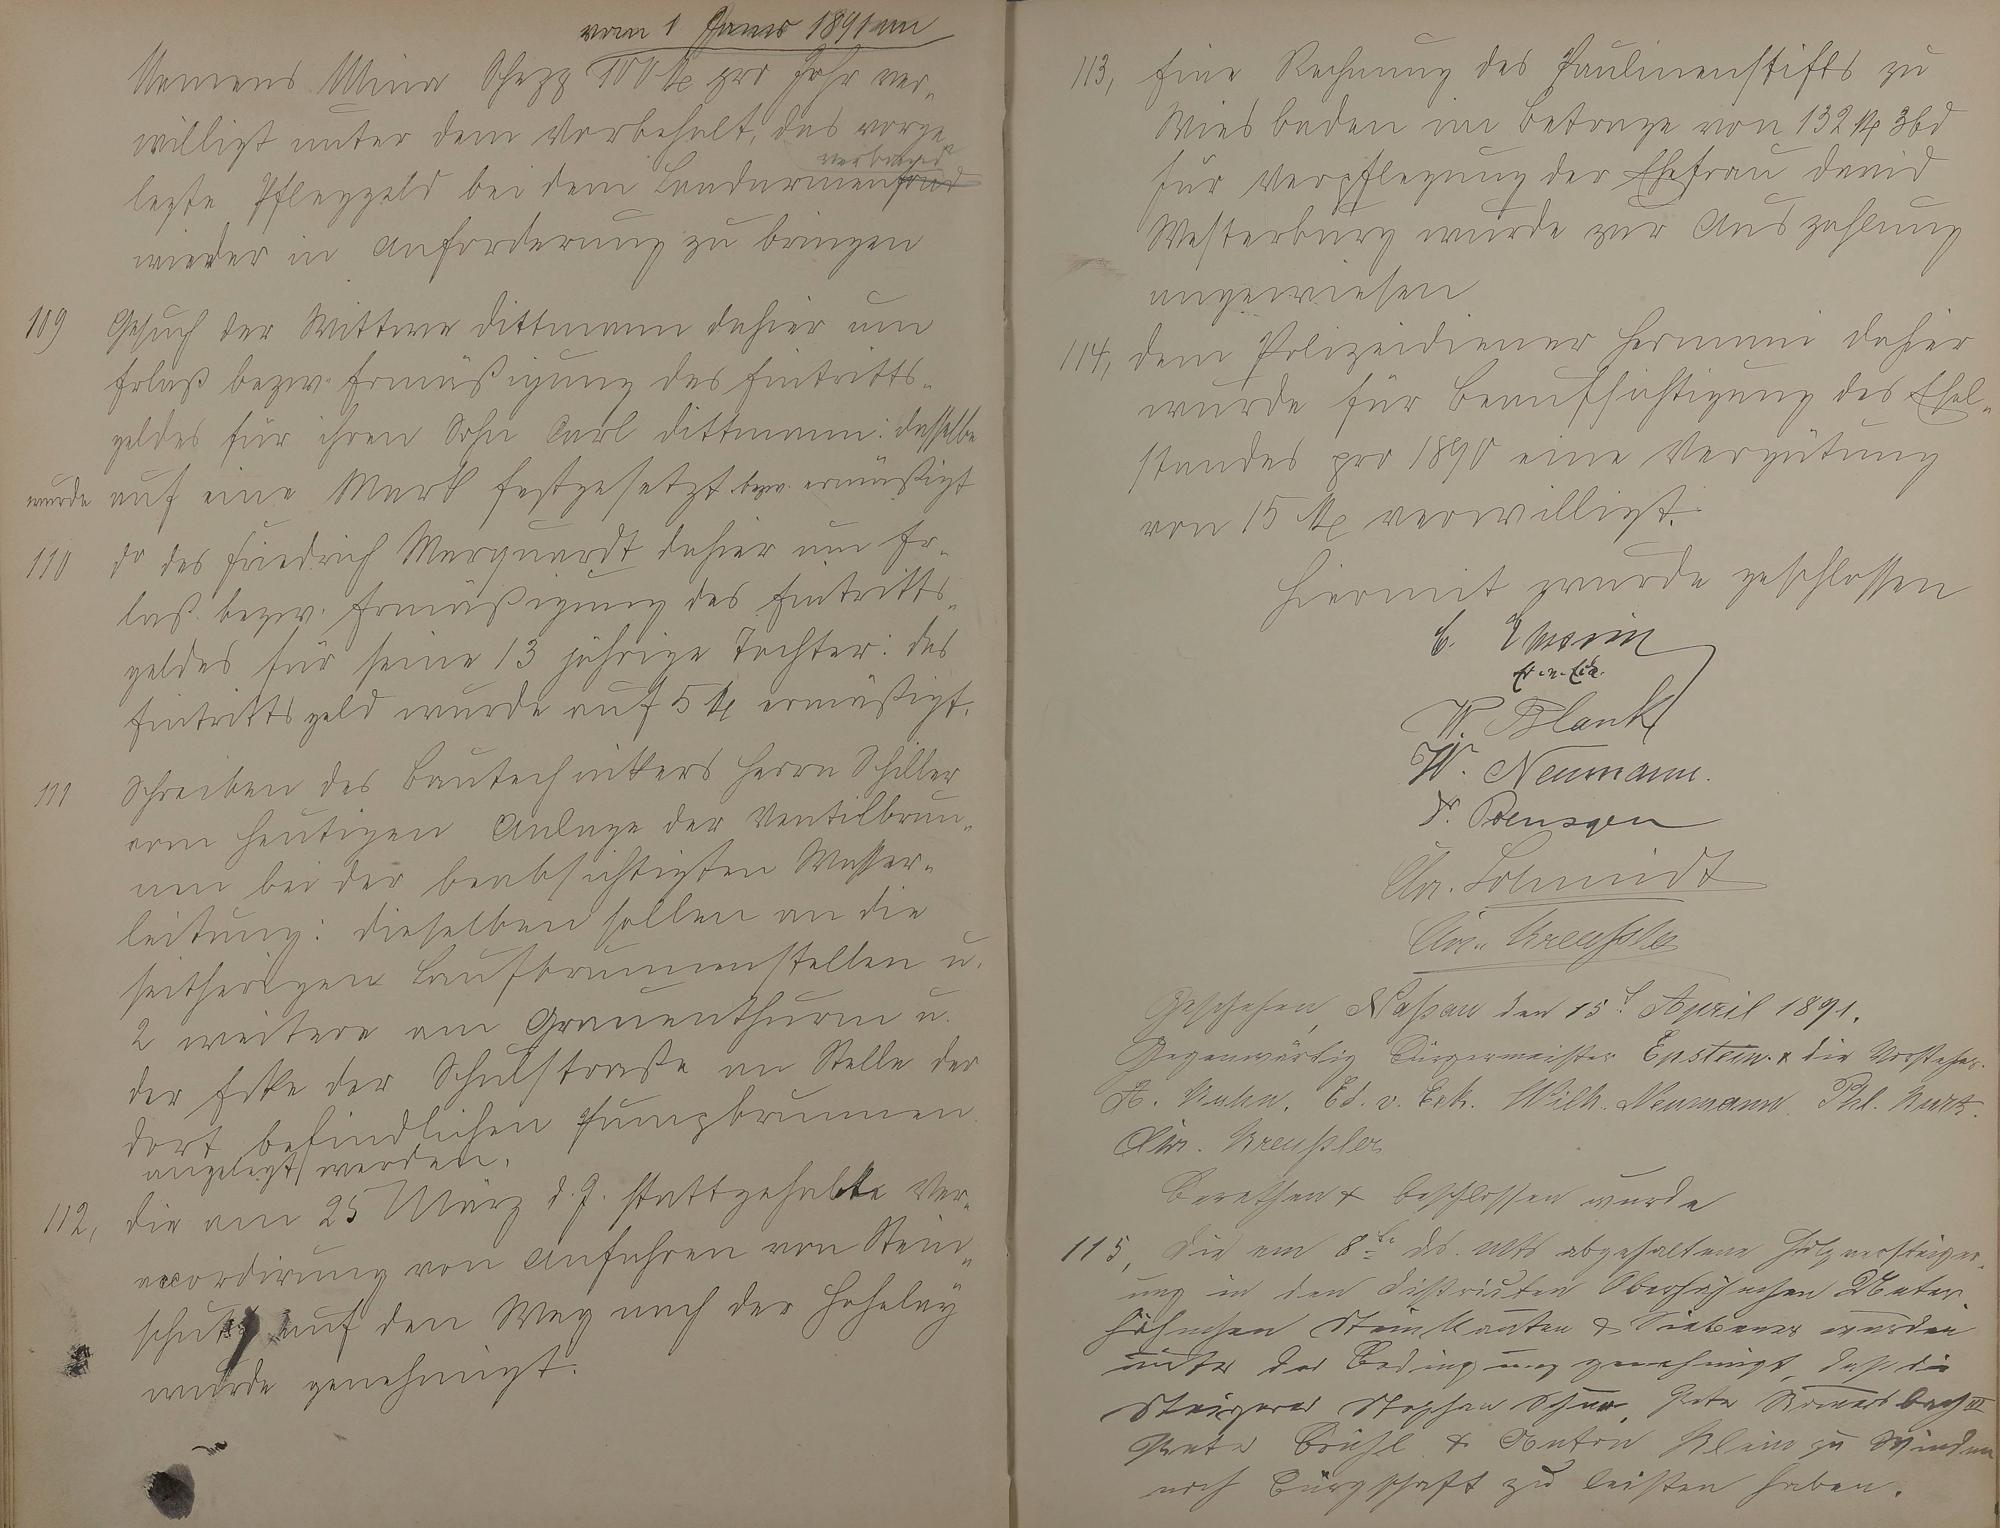 vom 1 Januar 1891 an
Namens Mina Schepp 100 M pro Jahr ver-
willigt unter dem Vorbehalt, das vorge-
verband
legte Pfleggeld bei dem Landarmenfond
wieder in Anforderung zu bringen
109 Gesuch der Wittwe Dittmann dahier um
Erlaß bezw. Ermäßigung des Eintritts-
geldes für ihren Sohn Carl Dittmann: dasselbe
wurde auf eine Mark festgesetzt bezw. ermäßigt
110 do des Friedrich Marquardt dahier um Er-
laß bezw. Ermäßigung des Eintritts-
geldes für seine 13 jährige Tochter: das
Eintrittsgeld wurde auf 5 M ermäßigt.
111 Schreiben des Bautechnikers Herrn Schiller
vom heutigen Anlage der Ventilbrun-
nen bei der beabsichtigten Wasser-
leitung: dieselben sollen an die
seitherigen Laufbrunnenstellen u.
2 weitere am Grauenthurm u.
der Ecke der Schulstraße an Stelle der
dort befindlichen Pumpbrunnen
angelegt werden.
112, die am 25 März d. J. stattgehabte Ver-
accordirung von Anfuhren von Stein-
schutt auf den Weg nach der Hohelay
wurde genehmigt.
113, Eine Rechnung des Paulinenstifts zu
Wiesbaden im Betrage von 132 M 36 d
für Verpflegung der Ehefrau David
Westerburg wurde zur Auszahlung
angewiesen
114, dem Polizeidiener Hermani dahier
wurde für Beaufsichtigung des Esel-
standes pro 1890 eine Vergütung
von 15 M verwilligt.
Hiermit wurde geschlossen
W. Blank
W. Neumann.
Chr. Schmidt
Chr. Kreußler
Geschehen, Naßau den 15t April 1891.
Gegenwärtig Bürgermeister Epstein & die Vorsteher
A. Kuhn. Ed. v. Eck. Wilh. Neumann Phl. Kurtz.
Chr. Kreußler
Berathen & beschlossen wurde
115, Die am 8te ds. Mts abgehaltene Holzversteiger-
ung in den Distrikten Oberhähnchen Unter
hähnchen Steinkauten & Siebener wurden
unter der Bedingung genehmigt, daß die
Steigerer Stephan Peter III
Peter Brühl & Anton Klein zu Winden
noch Bürgschaft zu leisten haben.